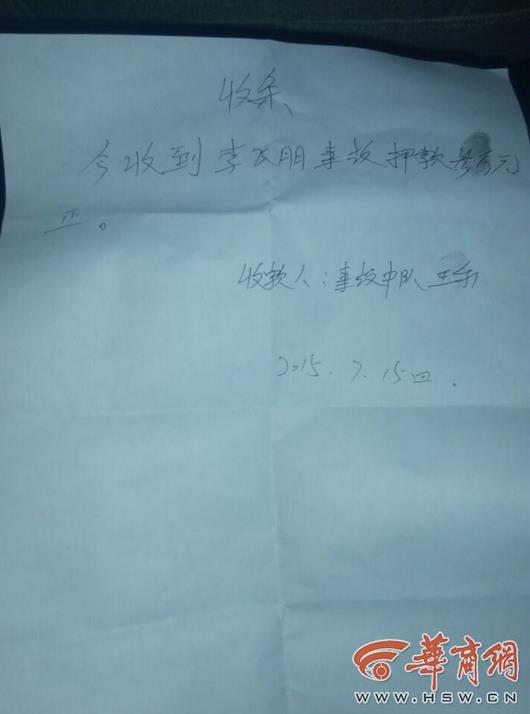 收条
今收到李飞朋事故押款叁万元
正。
收款人:事故中队王
2015.7.15日.
华商网
WWW.HSW.CN